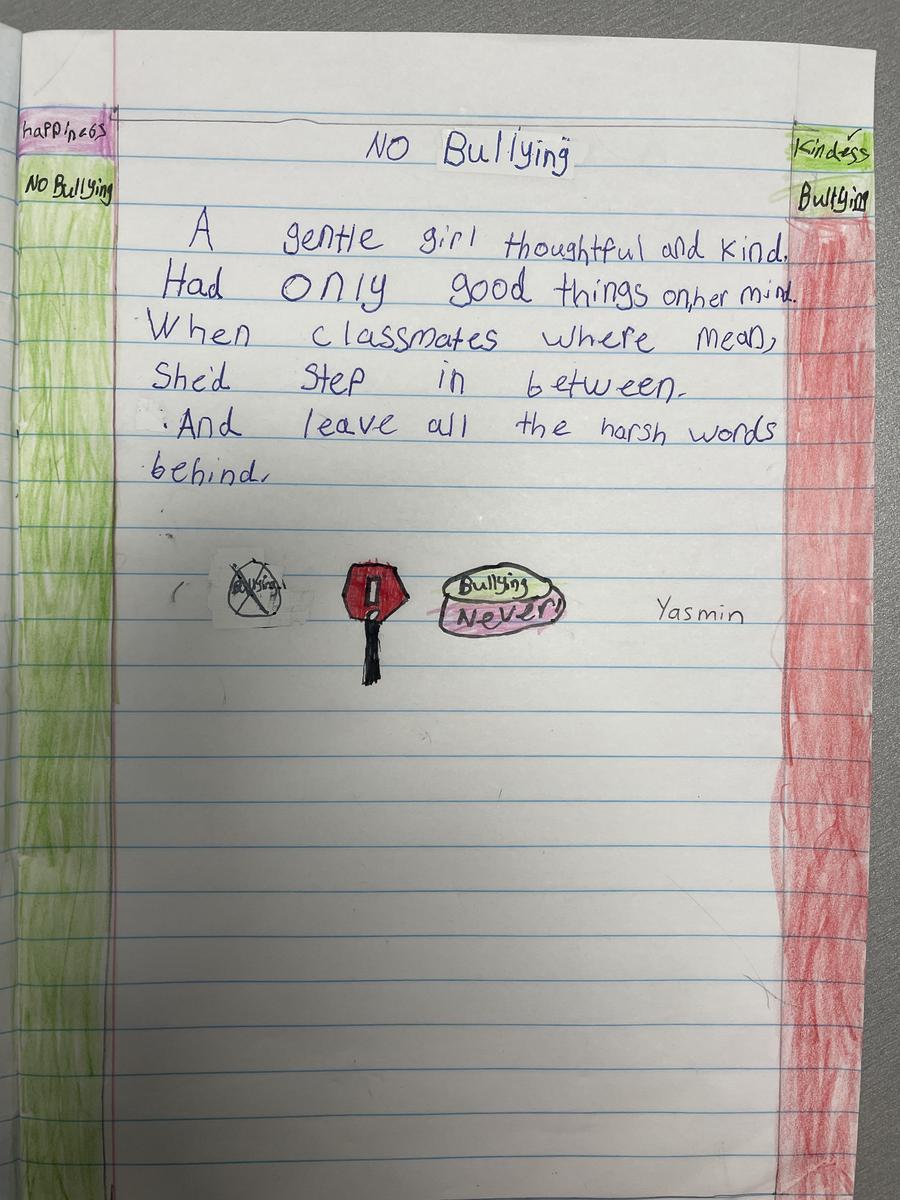 happiness
Kindess
NO Bullying
NO Bullying
Bullying
A gentle girl thoughtful and kind,
Had only good things on,her mind.
When classmates where mean,
She'd step in between.
And leave all the harsh words
behind.
Bullying
Bullying
Never!
Yasmin